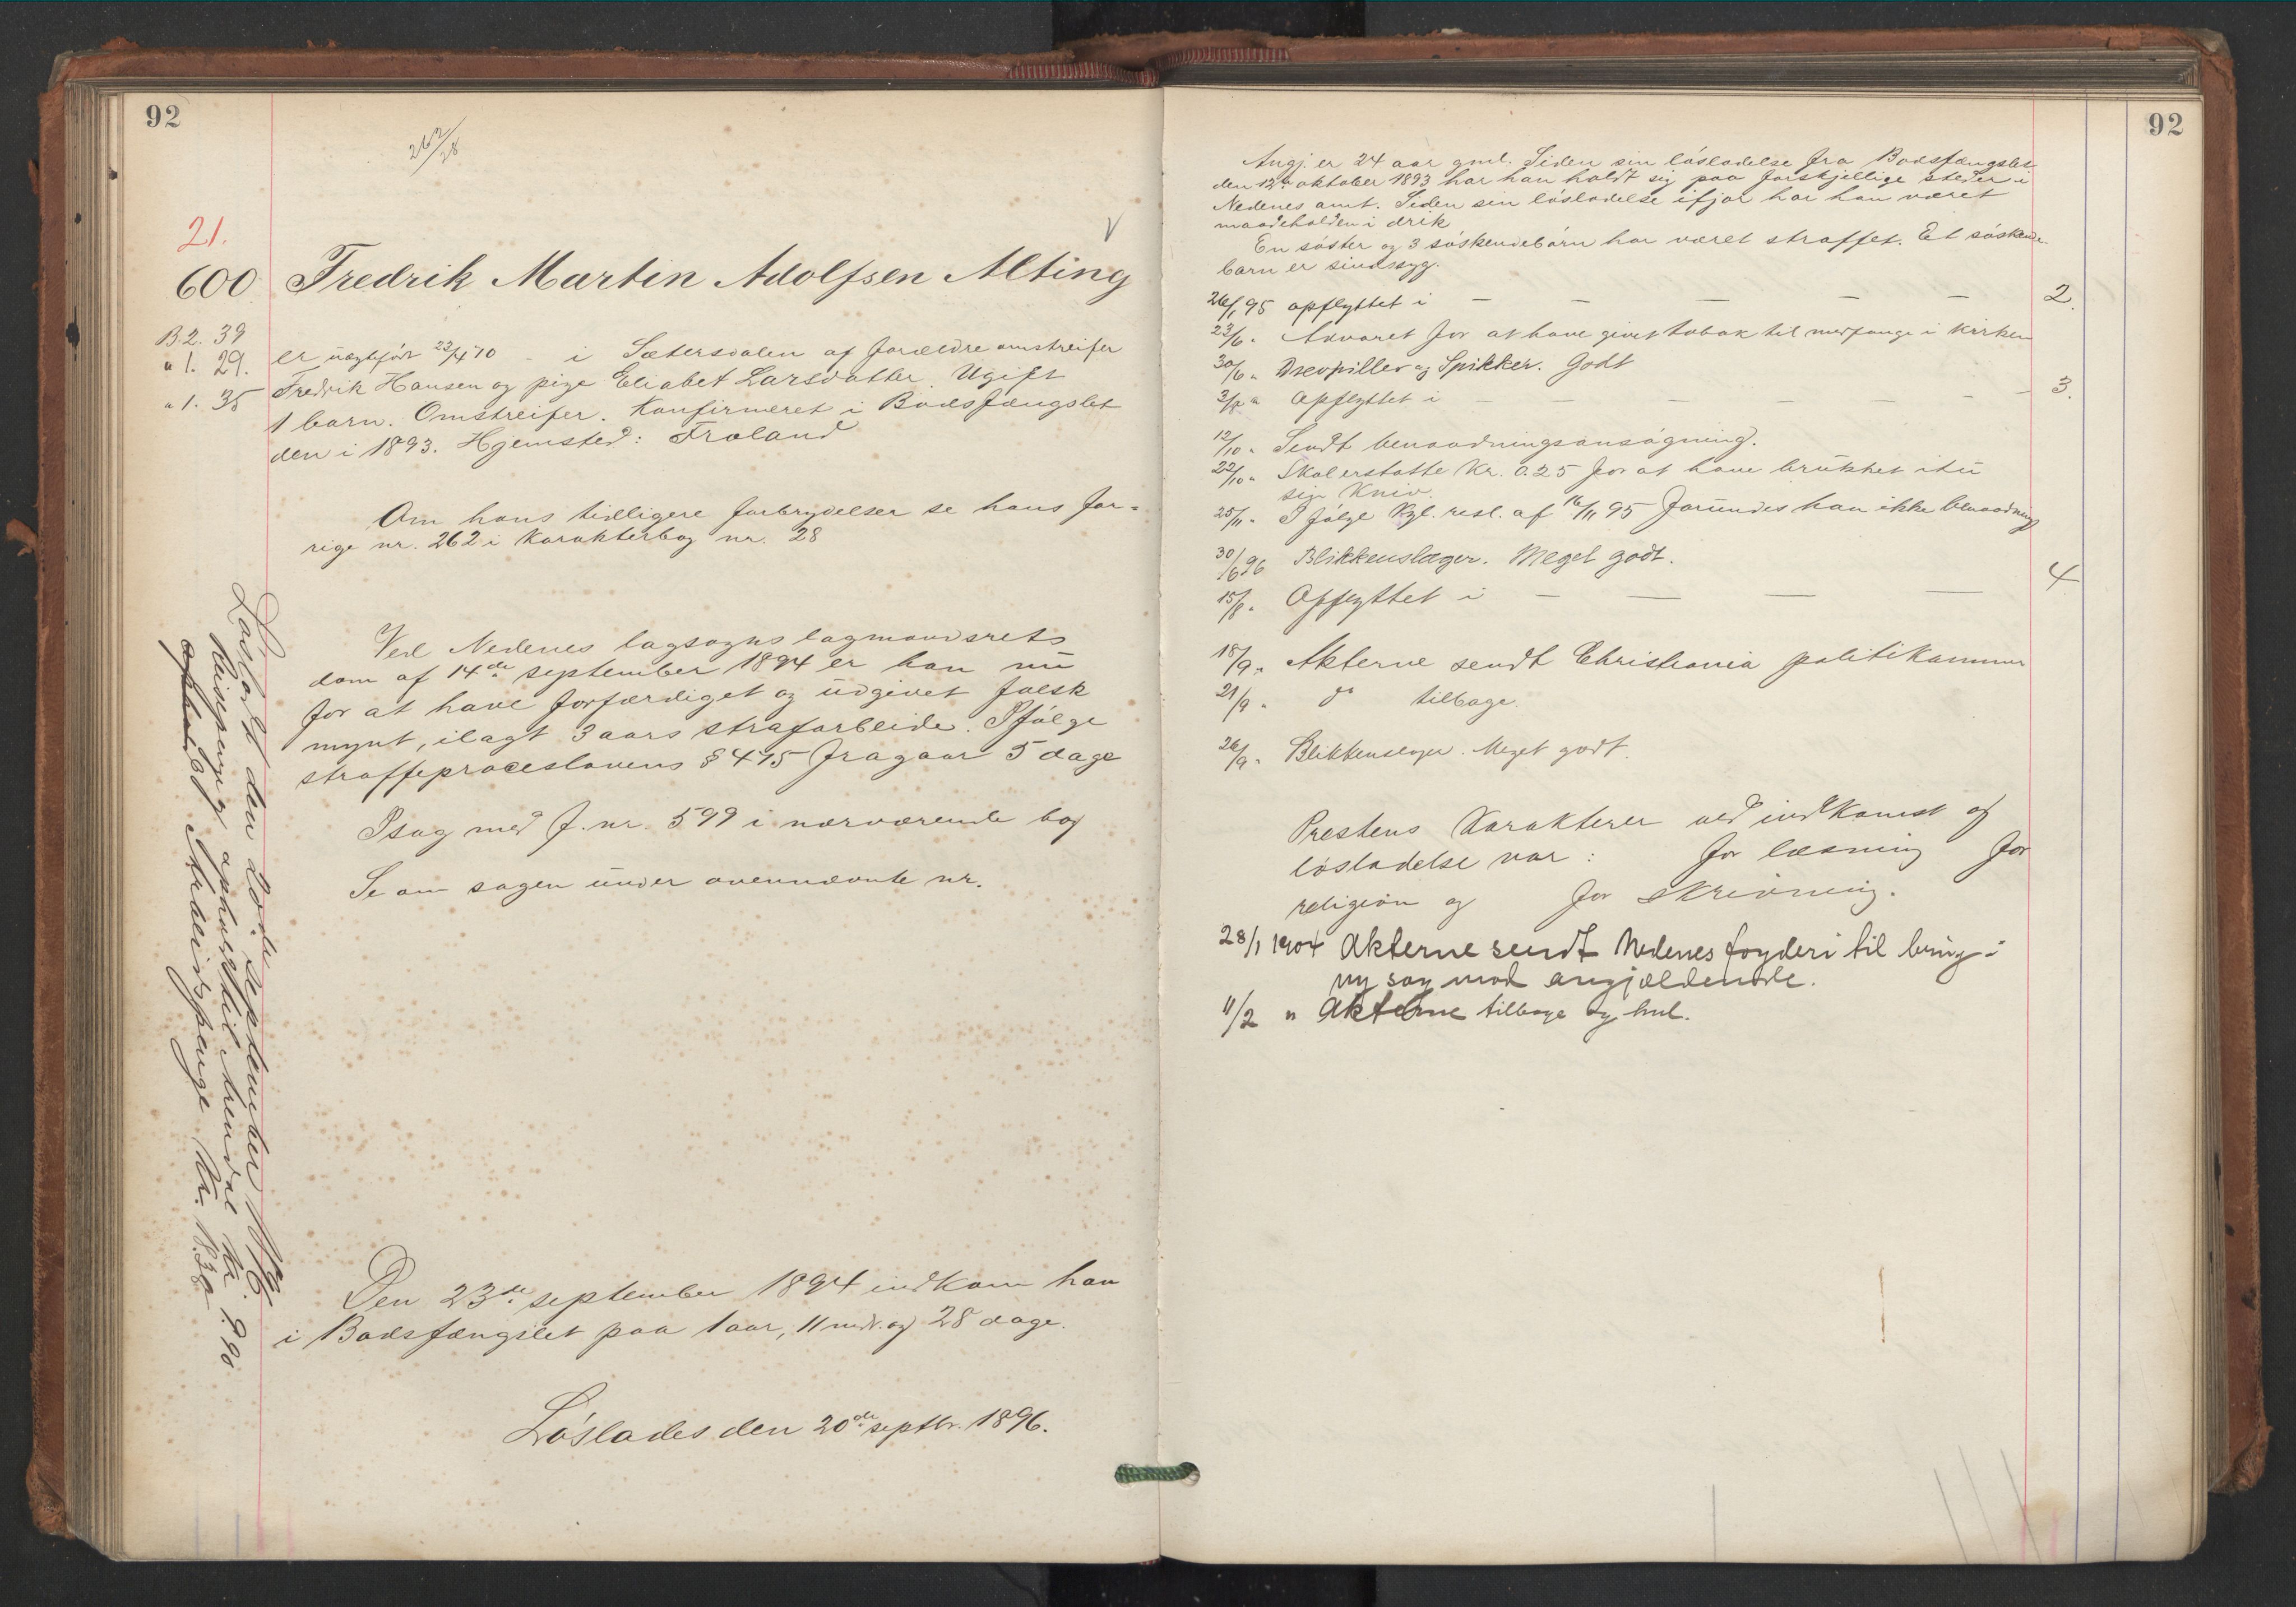 92
262/28
21.
600 Fredrik Martin Adolfsen Alting
B.2. 39
" 1. 29.
" 1. 35
er uægtefödt 22/4 70 - i Sætersdalen af forældre omstreifer
Fredrik Hansen og pige Eliabet Larsdatter. Ugift
1 barn. Omstreifer. Konfirmeret i Bodsfængslet
den i 1893. Hjemsted: Froland
Om hans tidligere forbrydelser se hans for-
rige nr. 262 i Karakterbog nr. 28
Ved Nedenes lagsogns lagmandsrets
dom af 14de september 1894 er han nu
for at have forfærdiget og udgivet falsk
mynt, ilagt 3 aars strafarbeide. Ifölge
straffeproceslovens § 475 fragaar 5 dage
I sag med f. nr. 599 i nærværende bog
Se om sagen under ovennævnte nr.
Den 23de september 1894 indkom han
i Bodsfængslet paa 1 aar, 11 mdr. og 28 dage.
Löslades den 20de septbr. 1896.
Lösladt den 20de september 1896.
Reisepenge og ophold til Arendal kr. 9.90
Arbeidspenge kr. 18.38
92
Angj. er 24 aar gml. Siden sin lösladelse fra Bodsfængslet
den 12te oktober 1893 har han holdt sig paa forskjellige steder i
Nedenes amt. Siden sin lösladelse ifjor har han været
maadeholden i drik
En söster og 3 söskendebörn har været straffet. Et söskende-
barn er sindssyg.
26/1 95 opflyttet i — — — — — 2.
23/6 " Advaret for at have givet tobak til medfange i kirken
30/6 " Drevpiller og Spikker. Godt
3/8 " Opflyttet i — — — — — — — 3.
12/10 " Sendt benaadningsansögning.
22/10 " Skal erstatte Kr. 0.25 for at have brukket itu
sin Kniv.
25/11 " I fölge Kgl. resl. af 16/11 95 forundes han ikke benaadning
30/6 96 Blikkenslager. Meget godt.
15/8 " Opflyttet i — — — — 4
18/9 " Akterne sendt Christiania politikammer
21/9 " do tilbage.
26/9 " Blikkenslager. Meget godt.
Prestens Karakterer ved indkomst og
lösladelse var: for læsning for
religion og for skrivning.
28/1 1904 Akterne sendt Nedenes fogderi til brug i
ny sag mod angjældende.
11/2 " Akterne tilbage og hnl.